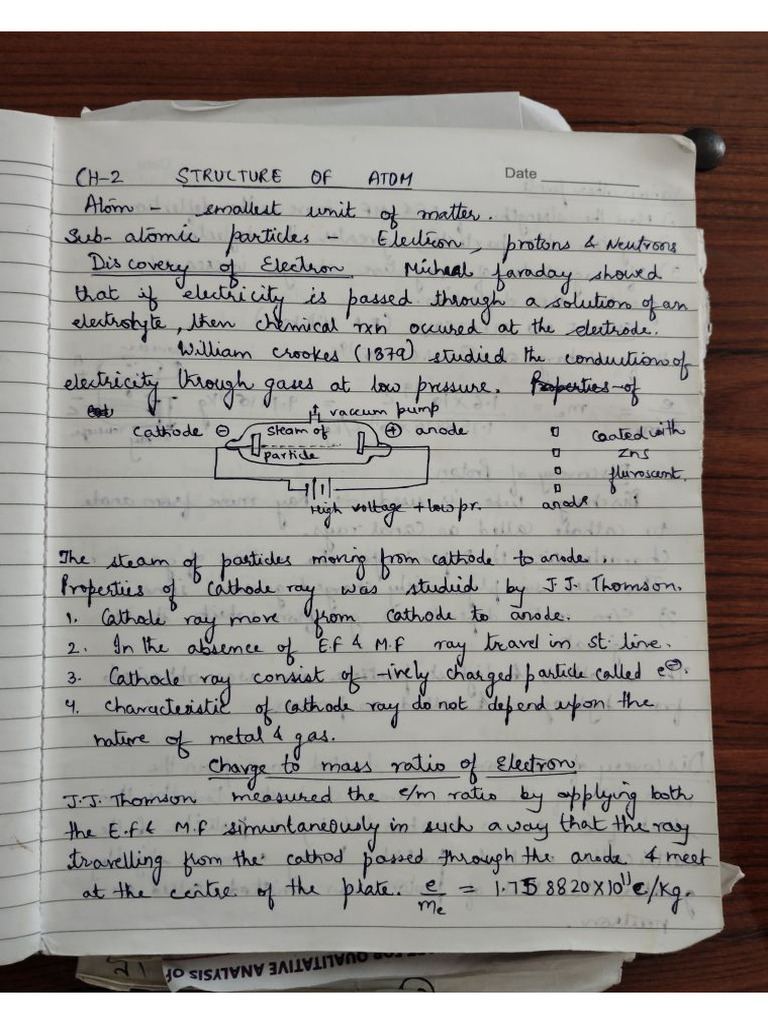 CH-2 STRUCTURE OF ATOM Date
Atom - smallest unit of matter.
Sub-atomic particles - Electron, protons & Neutrons
Discovery of Electron. Micheal faraday showed
that if electricity is passed through a solution of an
electrolyte, then chemical rxn occured at the electrode.
William Crookes (1879) studied the conduction of
electricity through gases at low pressure. Properties of
vaccum pump
cathode ⊖ Steam of ⊕ anode coated with
particle ZnS
fluroscent
High voltage + low pr. anode
The steam of particles moving from cathode to anode.
Properties of Cathode ray was studied by J J. Thomson.
1. Cathode ray move from cathode to anode.
2. In the absence of E.F & M.F ray travel in st. line.
3. Cathode ray consist of -ively charged particle called e⊖.
4. Characteristic of Cathode ray do not depend upon the
nature of metal & gas.
Charge to mass ratio of Electron
J.J. Thomson measured the e/m ratio by applying both
the E.F & M.F simuntaneously in such a way that the ray
travelling from the cathod passed through the anode & meet
at the centre of the plate. e/me = 1.758820×10¹¹ c/kg.
FOR QUALITATIVE ANALYSIS OF